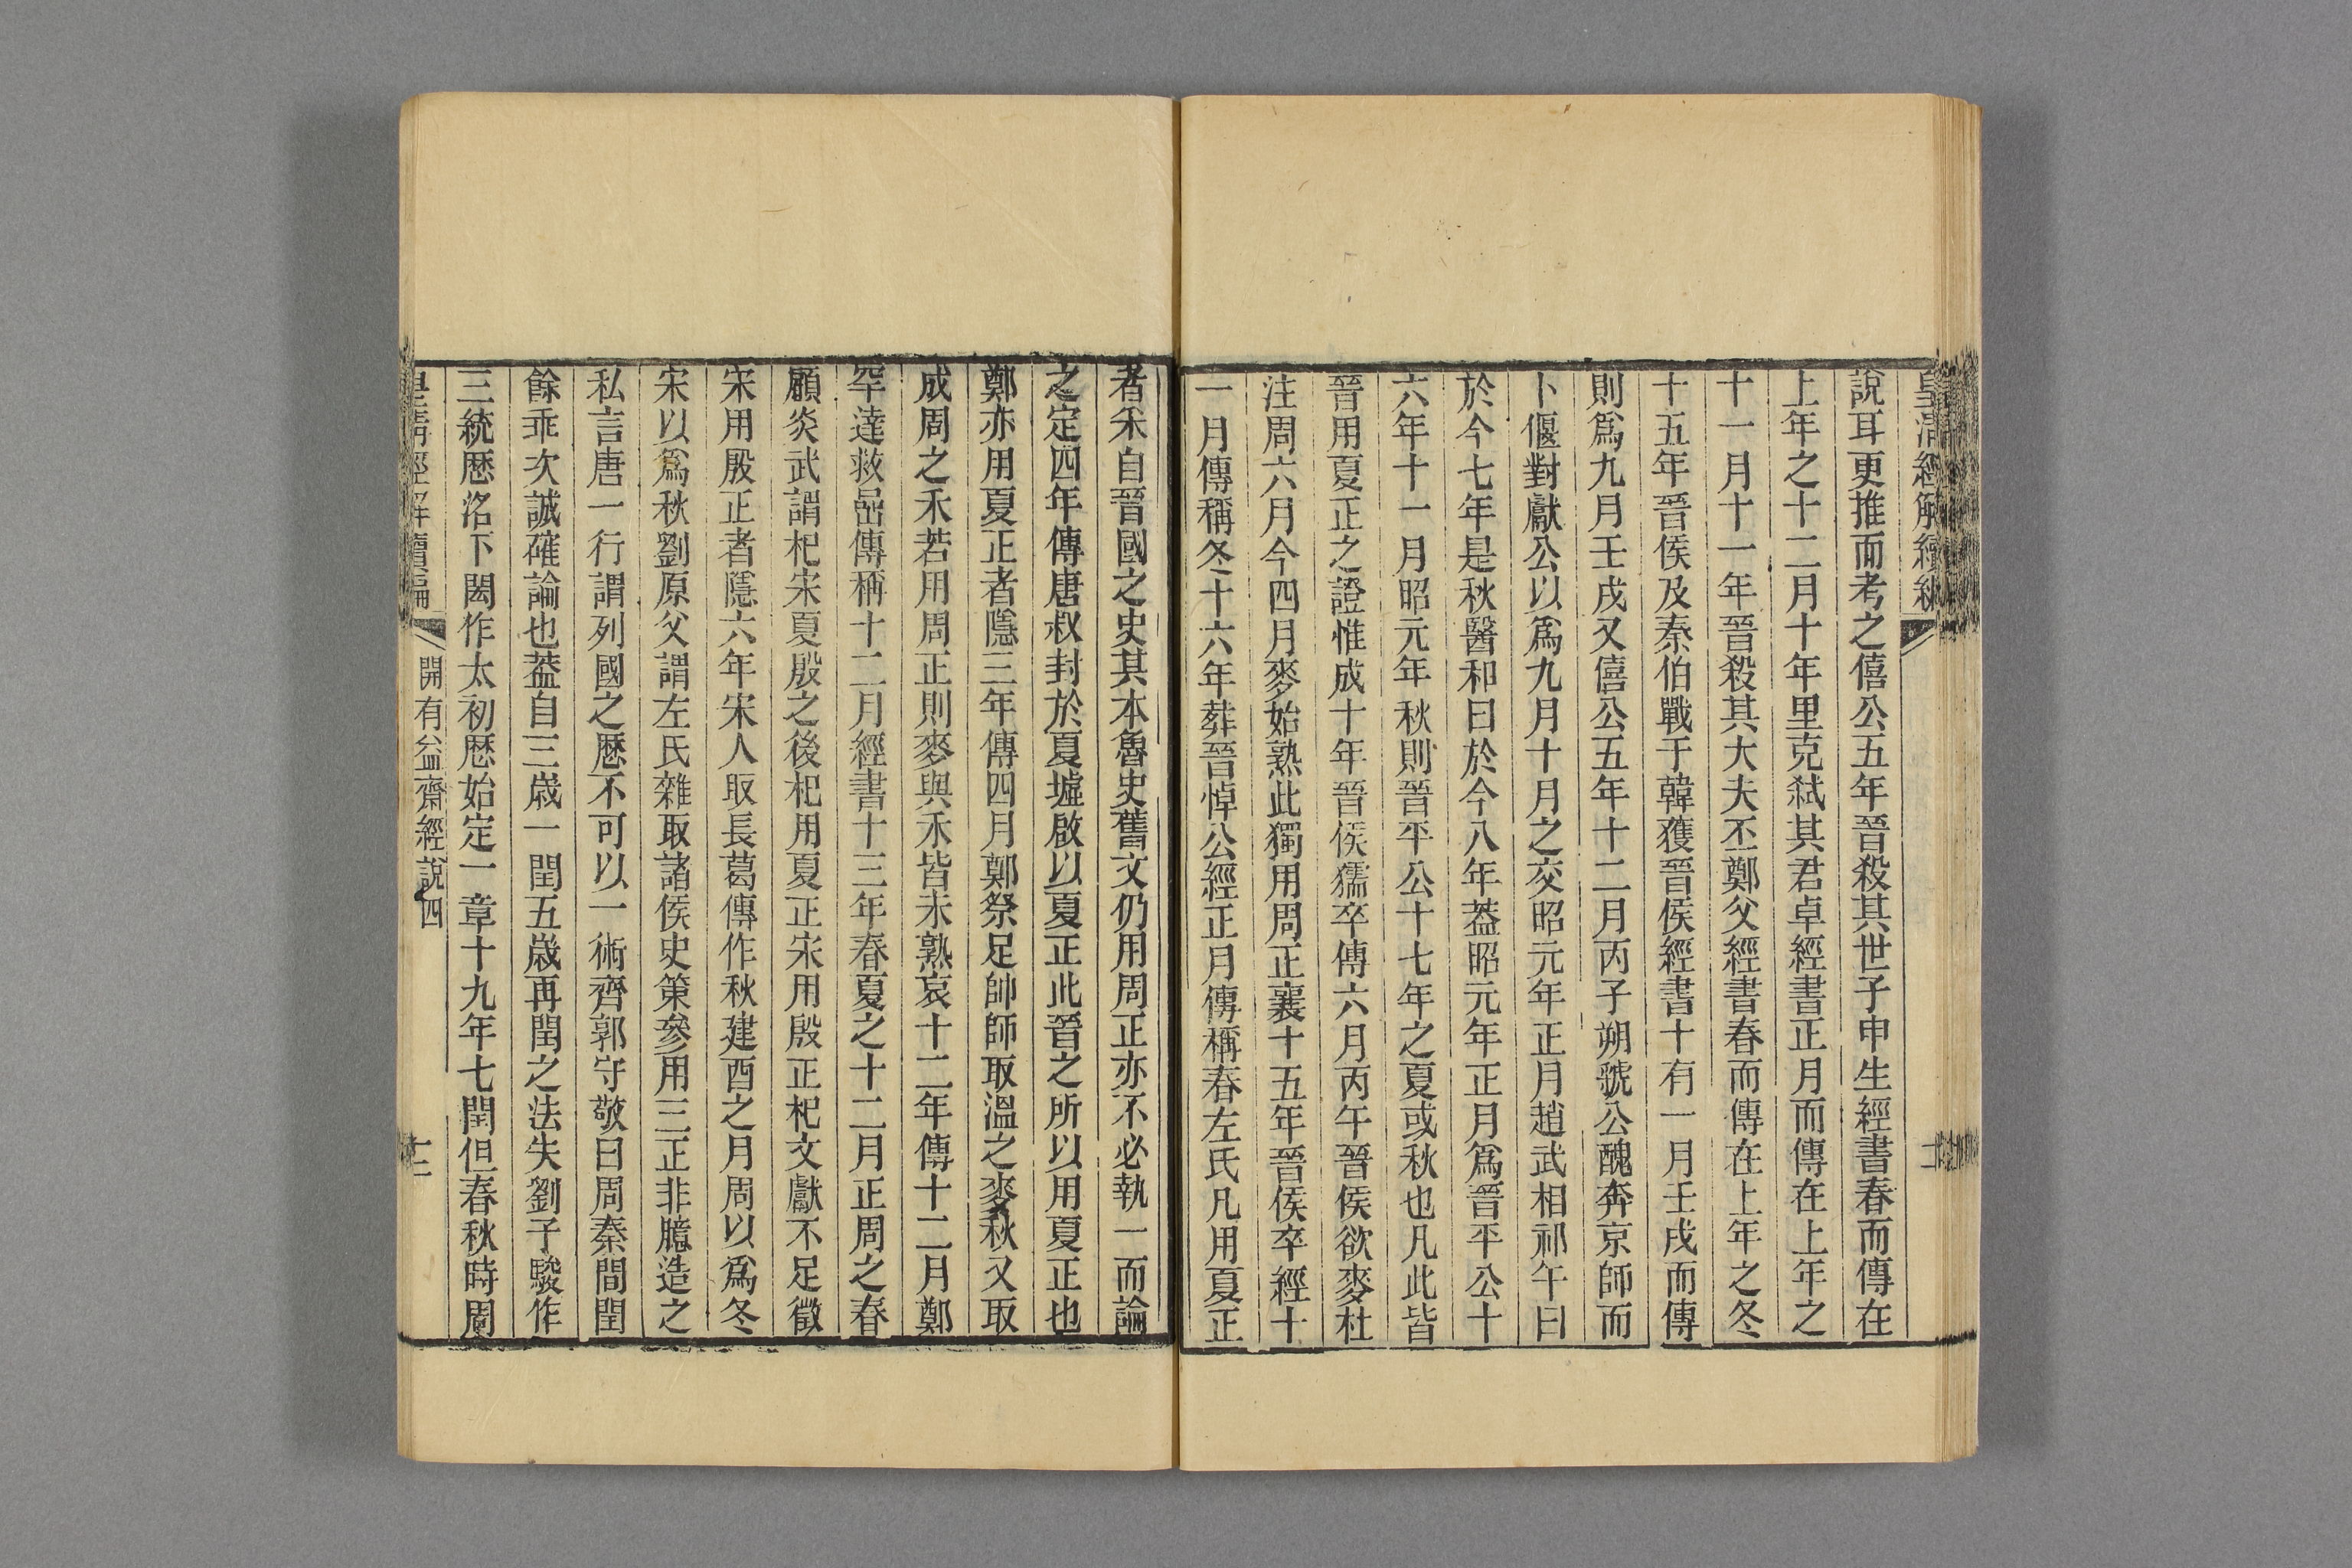 皇清經解續編
說耳更推而考之僖公五年晉殺其世子申生經書春而傳在
上年之十二月十年里克弒其君卓經書正月而傳在上年之
十一月十一年晉殺其大夫丕鄭父經書春而傳在上年之冬
十五年晉侯及秦伯戰于韓獲晉侯經書十有一月壬戌而傳
則爲九月壬戌又僖公五年十二月丙子朔虢公醜奔京師而
卜偃對獻公以爲九月十月之交昭元年正月趙武相祁午曰
於今七年是秋醫和曰於今八年葢昭元年正月爲晉平公十
六年十一月昭元年秋則晉平公十七年之夏或秋也凡此皆
晉用夏正之證惟成十年晉侯獳卒傳六月丙午晉侯欲麥杜
注周六月今四月麥始熟此獨用周正襄十五年晉侯卒經十
一月傳稱冬十六年葬晉悼公經正月傳稱春左氏凡用夏正
者禾自晉國之史其本魯史舊文仍用周正亦不必執一而論
之定四年傳唐叔封於夏墟啟以夏正此晉之所以用夏正也
鄭亦用夏正者隱三年傳四月鄭祭足帥師取溫之麥秋又取
成周之禾若用周正則麥與禾皆未熟哀十二年傳十二月鄭
罕達救嵒傳稱十二月經書十三年春夏之十二月正周之春
顧炎武謂杞宋夏殷之後杞用夏正宋用殷正杞文獻不足徵
宋用殷正者隱六年宋人取長葛傳作秋建酉之月周以爲冬
宋以爲秋劉原父謂左氏雜取諸侯史策參用三正非臆造之
私言唐一行謂列國之厯不可以一術齊郭守敬曰周秦間閏
餘乖次誠確論也葢自三歳一閏五歳再閏之法失劉子駿作
三統厯洛下閎作太初厯始定一章十九年七閏但春秋時周
皇清經解續編
開有益齋經說四
十二